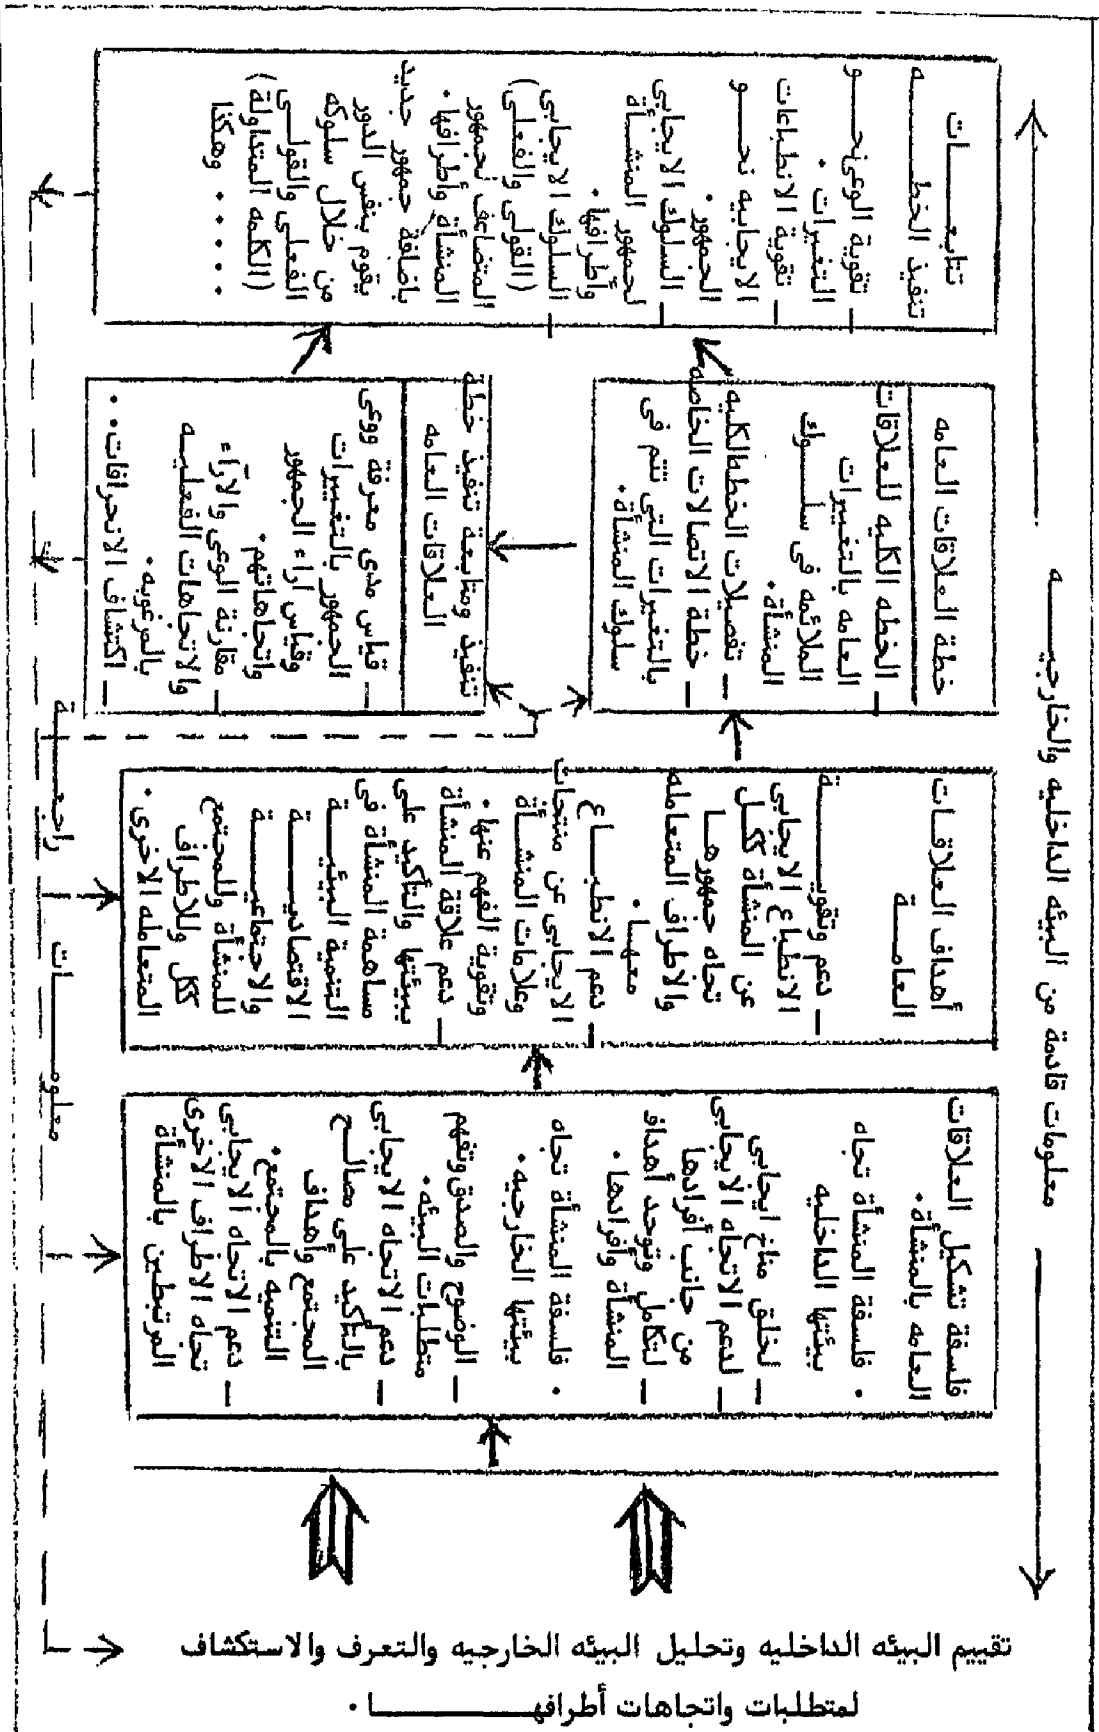 معلومات قادمة من البيئه الداخليه والخارجيـــه
فلسفة تشكيل العلاقات
العامه بالمنشأة .
• فلسفة المنشأة تجاه
بيئتها الداخليه
— لخلق مناخ ايجابى
— لدعم الاتجاه الايجابى
من جانب أفرادها
— لتكامل وتوحد أهداف
المنشأة وأفرادها .
• فلسفة المنشأة تجاه
بيئتها الخارجيه .
— الوضوح والصدق وتفهم
متطلبات البيئه .
— دعم الاتجاه الايجابى
بالتأكيد على مصالــح
المجتمع وأهداف
التنميه بالمجتمع .
— دعم الاتجاه الايجابى
تجاه الاطراف الاخرى
المرتبطين بالمنشأة
أهداف العلاقــات
العامـــة
— دعم وتقويـــــة
الانطباع الايجابى
عن المنشأة ككل
تجاه جمهورهـــا
والاطراف المتعامله
معهــا .
— دعم الانطبـــاع
الايجابى عن منتجات
وعلامات المنشــأة
وتقوية الفهم عنها .
— دعم علاقة المنشأة
ببيئتها والتأكيد على
مساهمة المنشأة فى
التنمية البيئيـــة
الاقتصاديـــــة
والاجتماعيـــــة
للمنشأة وللمجتمع
ككل وللاطراف
المتعامله الاخرى .
خطة العلاقات العامه
— الخطه الكليه للعلاقات
العامه بالتغييرات
الملائمه فى سلــوك
المنشأة .
— تفصيلات الخطه الكليه
— خطة الاتصالات الخاصه
بالتغيرات التى تتم فى
سلوك المنشأة .
تنفيذ ومتابعة تنفيذ خطة
العلاقات العامه
— قياس مدى معرفة ووعى
الجمهور بالتغييرات
وقياس اراء الجمهور
واتجاهاتهم .
— مقارنة الوعى والآراء
والاتجاهات الفعليــه
بالمرغوبه .
— اكتشاف الانحرافات . .
تتابعـــــات
تنفيذ الخطـــــه
— تقوية الوعى نحـــو
التغيرات .
— تقوية الانطباعات
الايجابيه نحـــو
الجمهور .
— السلوك الايجابى
لجمهور المنشــأة
وأطرافها .
— السلوك الايجابى
(القولى والفعلى)
المتضاعف لجمهور
المنشأة وأطرافها .
باضافة جمهور جديد
يقوم بنفس الدور
من خلال سلوكه
الفعلى والقولـــى
(الكلمه المتداولة)
وهكذا . . . . .
معلومـــات راجعـــــة
تقييم البيئه الداخليه وتحليل البيئه الخارجيه والتعرف والاستكشاف
لمتطلبات واتجاهات أطرافهـــــا .